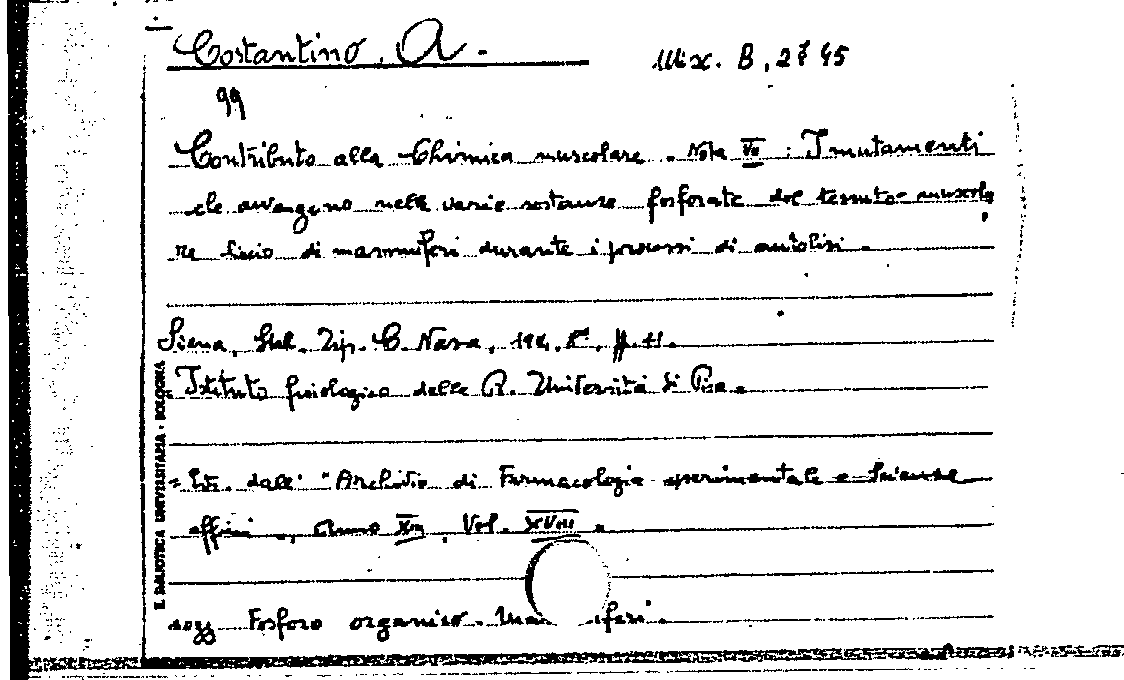 Costantino, A.
Misc. B, 2745
99
Contributo alla Chimica muscolare. Nota VII : I mutamenti
che avvengono nelle varie sostanze fosforate del tessuto muscola
re liscio di mammiferi durante i processi di autolisi.
Siena, Stab. Tip. C. Nava, 8°, pp. 11.
= Istituto fisiologico della R. Università di Pisa.
= Estr. dall' "Archivio di Farmacologia sperimentale e Scienze
affini, Anno XIII, Vol. XVIII.
sogg Fosforo organico. iferi.
R. BIBLIOTECA UNIVERSITARIA - BOLOGNA